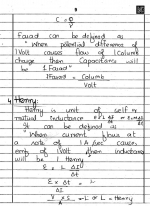 C = Q
V
Farad can be defined as
"When potential difference of
1 Volt causes flow of 1 Columb
charge then Capacitors will
be 1 Farad"
1 Farad = Columb
Volt
4. Henry:
Henry is unit of self or
mutual inductance
It can be defined as
"When current flows at
a rate of 1 A/sec causes
emf of 1 Volt then inductance
will be 1 Henry
= L
E x Δt = L
V x S = L or L = Henry